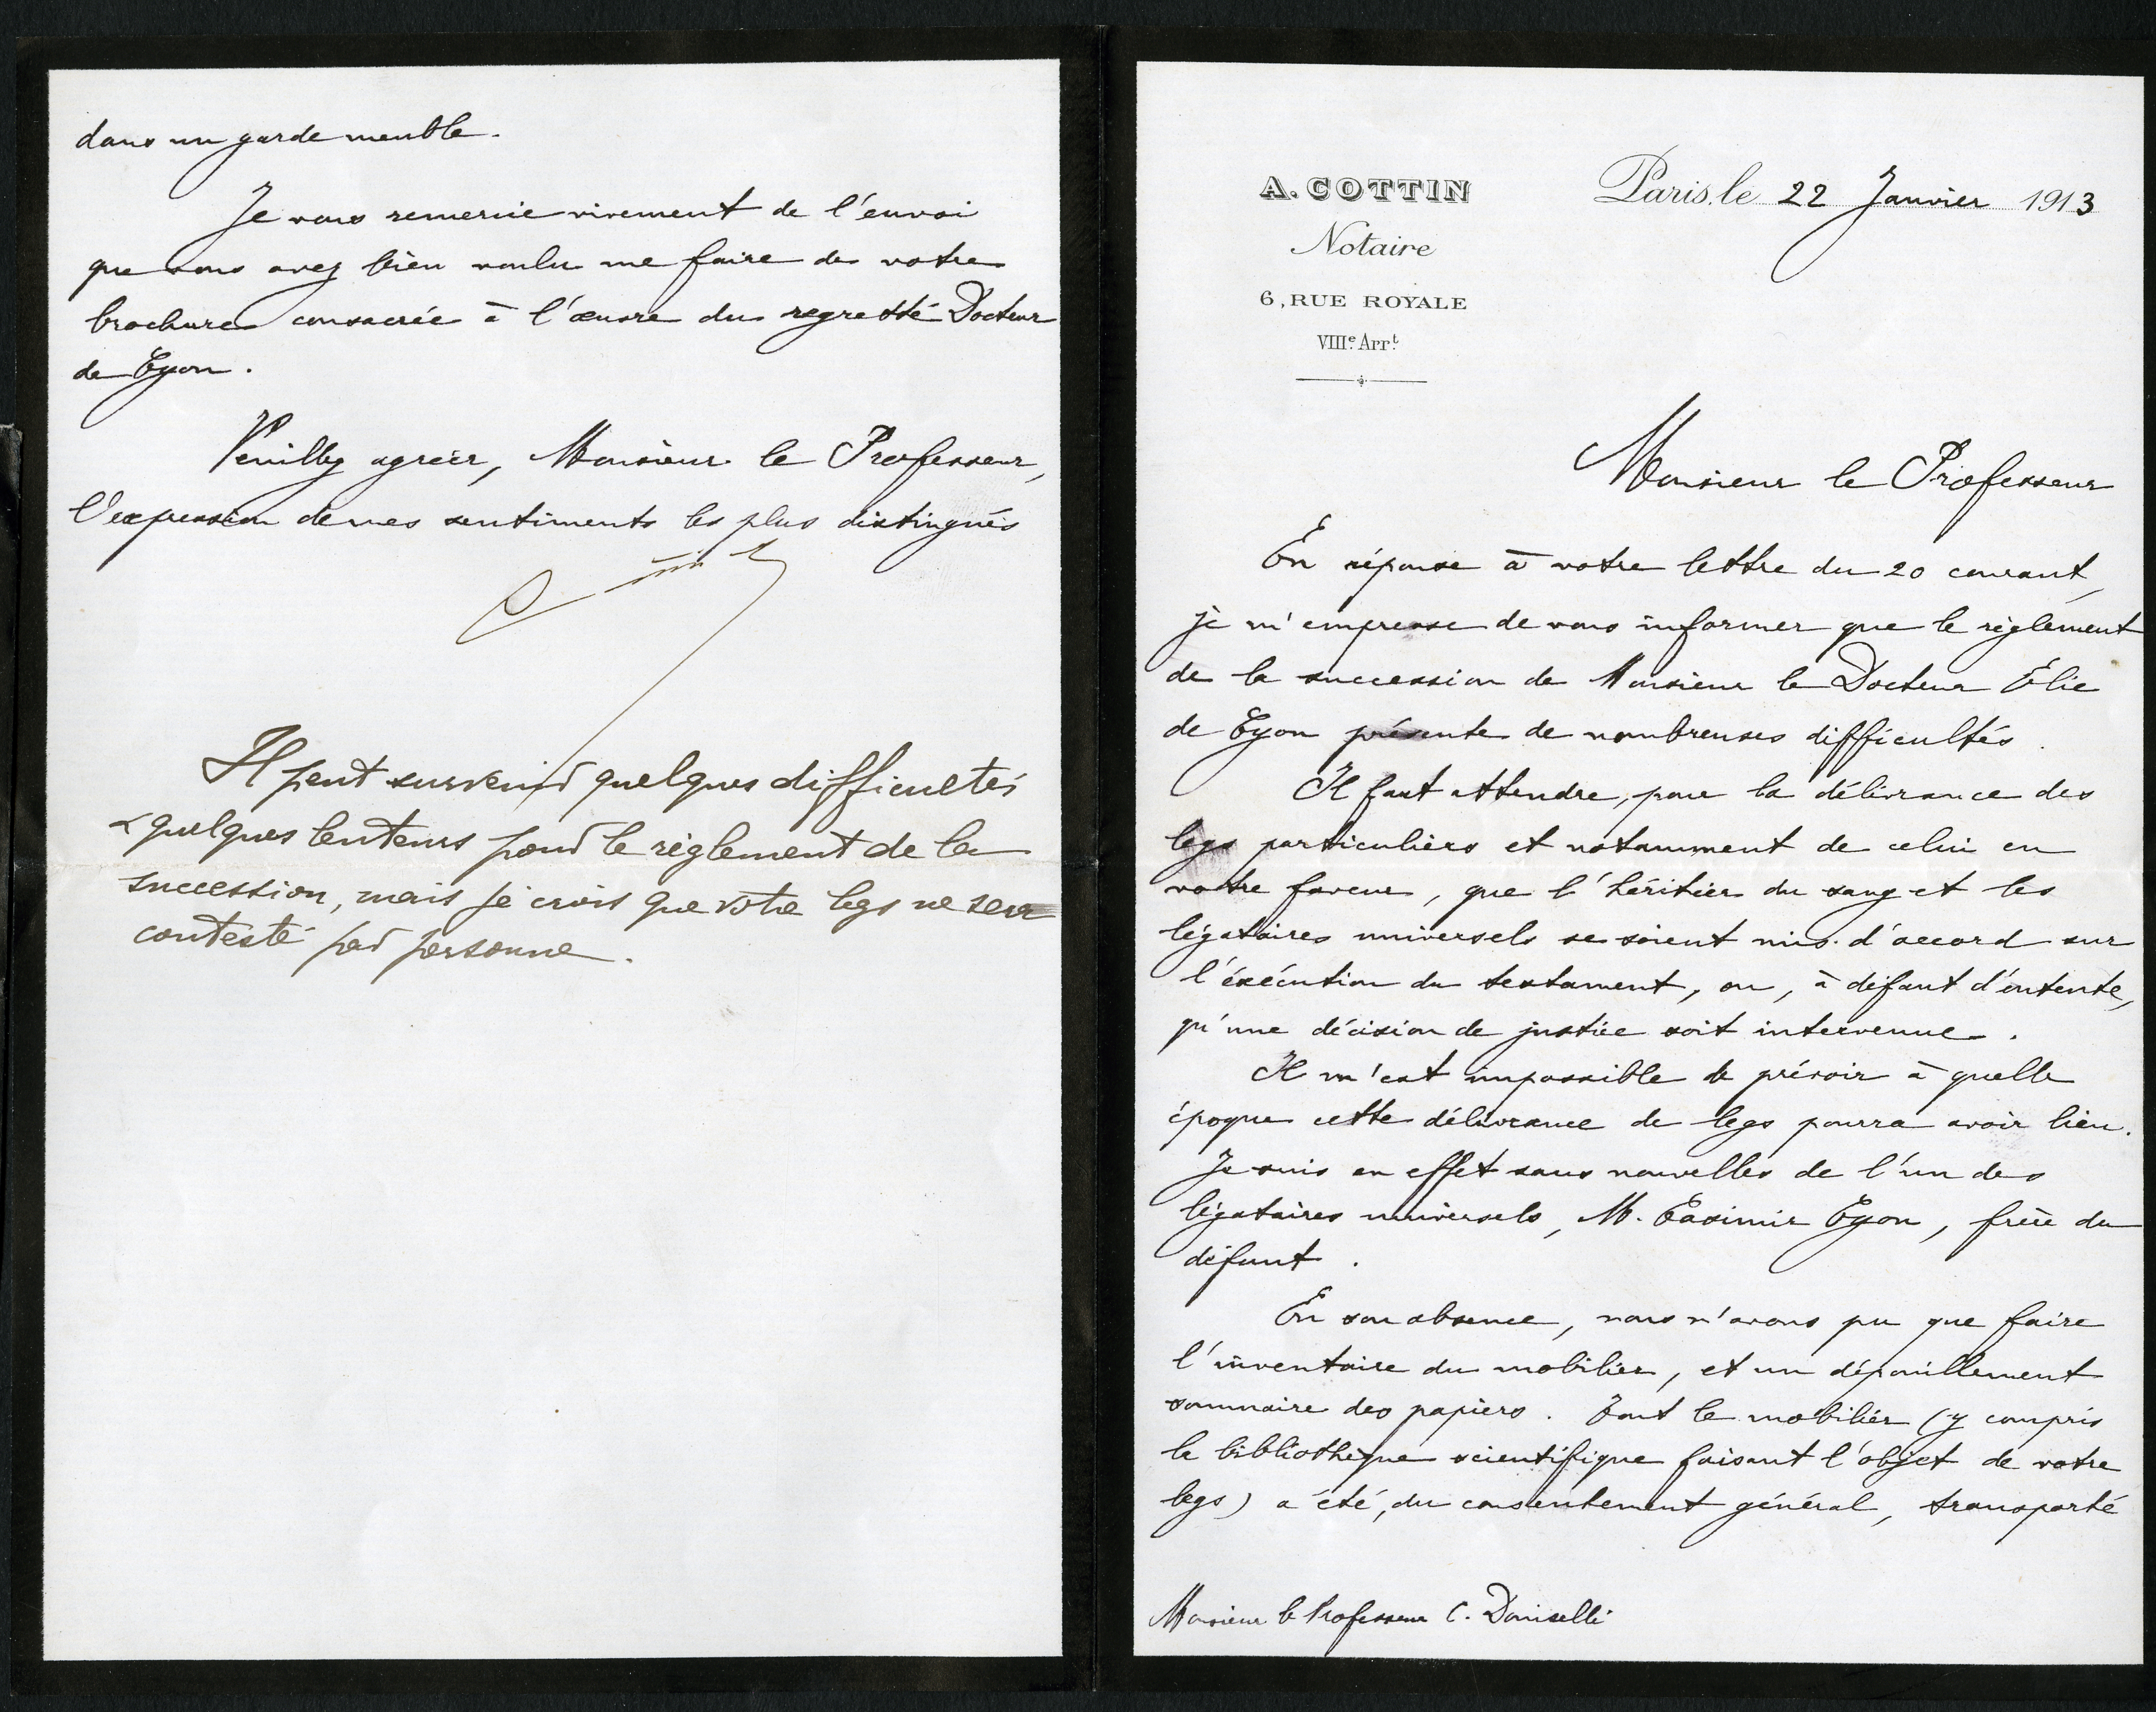 A. COTTIN
Notaire
6, RUE ROYALE
VIIIe. Arrt.
Paris, le 22 Janvier 1913
Monsieur le Professeur
En réponse à votre lettre du 20 courant,
je m'empresse de vous informer que le règlement
de la succession de Monsieur le Docteur Élie
de Cyon présente de nombreuses difficultés.
Il faut attendre, pour la délivrance des
legs particuliers et notamment de celui en
votre faveur, que l'héritier du sang et les
légataires universels se soient mis d'accord sur
l'éxécution du testament, ou, à défaut d'entente,
qu'une décision de justice soit intervenue.
Il m'est impossible de prévoir à quelle
époque cette délivrance de legs pourra avoir lieu.
Je suis en effet sans nouvelles de l'un des
légataires universels, M. Casimir Cyon, frère du
défunt.
En son absence, nous n'avons pu que faire
l'inventaire du mobilier, et un dépouillement
sommaire des papiers. Tout le mobilier (y compris
la bibliothèque scientifique faisant l'objet de votre
legs) a été, du consentement général, transporté
Monsieur le Professeur C. Doniselli
dans un garde meuble.
Je vous remercie vivement de l'envoi
que vous avez bien voulu me faire de votre
brochure consacrée à l'œuvre du regretté Docteur
de Cyon.
Veuillez agréer, Monsieur le Professeur,
l'expression de mes sentiments les plus distingués
Il peut survenir quelques difficultés
& quelques lenteurs pour le règlement de la
succession, mais je crois que votre legs ne sera
contesté par personne.